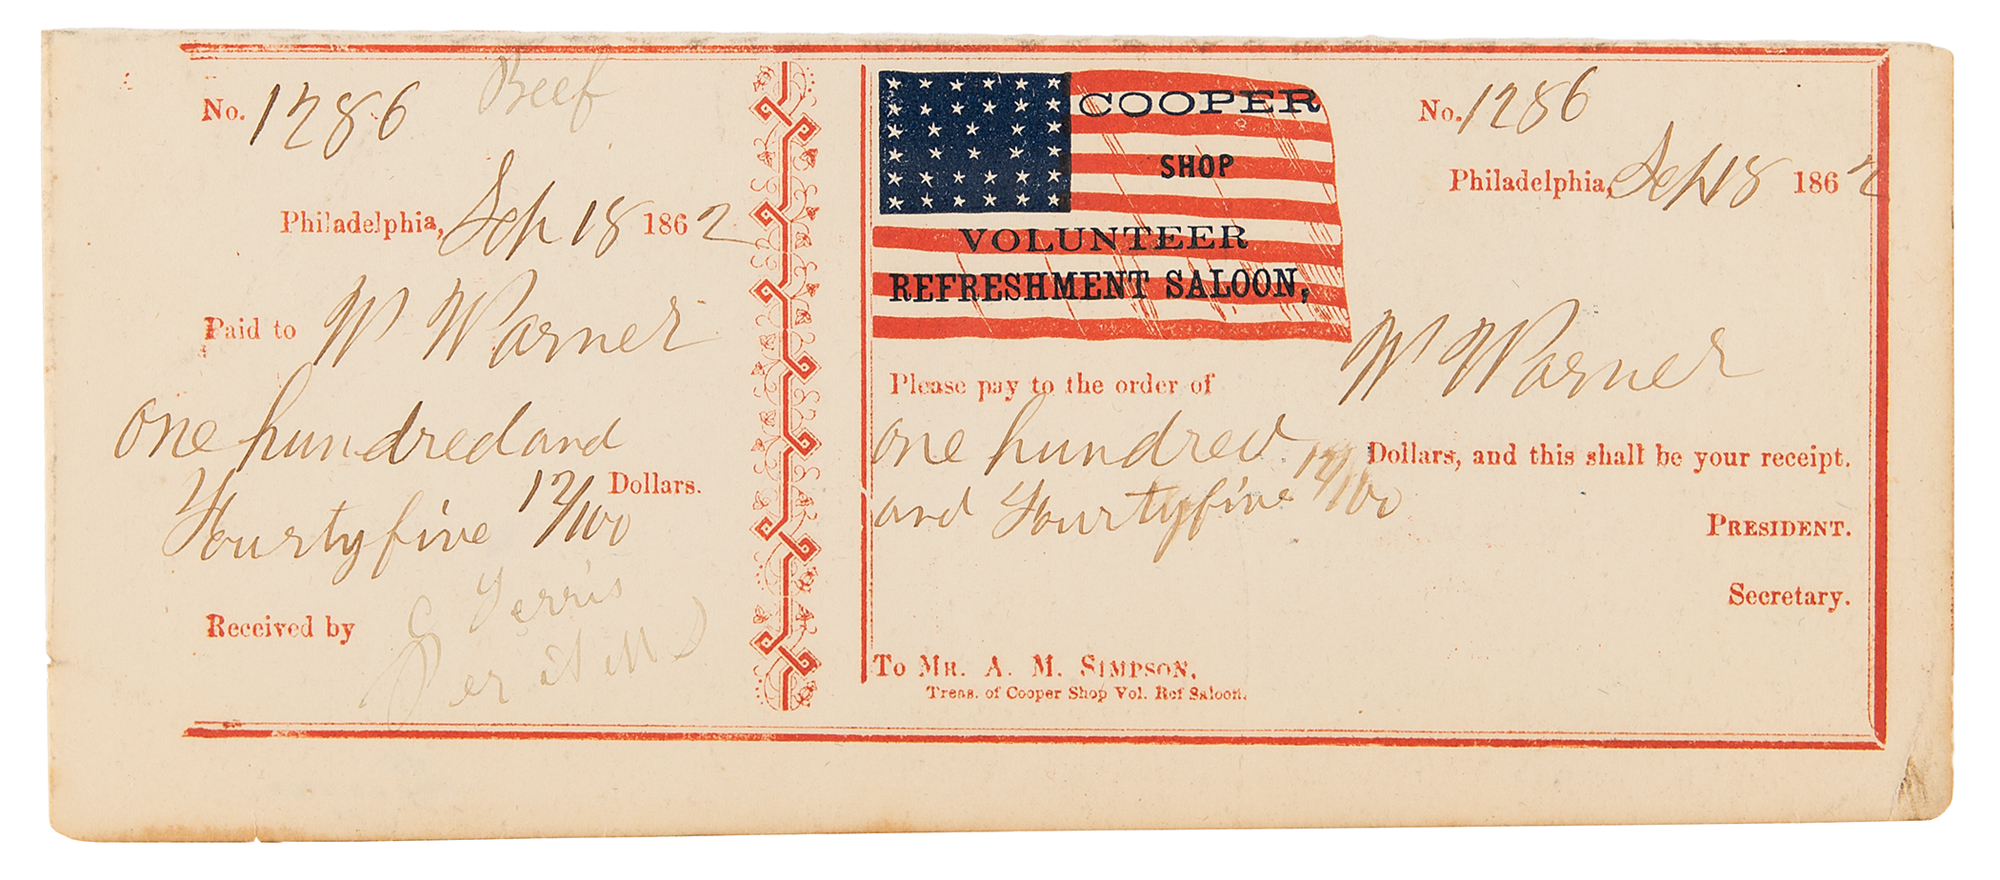 No. 1286 Beef
Philadelphia, Sep 18 1862
Paid to W Warner
one hundred and
Fourtyfive 12/100 Dollars.
Received by C Ferris
Per
COOPER
SHOP
VOLUNTEER
REFRESHMENT SALOON,
No. 1286
Philadelphia, Sep 18 1862
Please pay to the order of W Warner
one hundred 12/100 Dollars, and this shall be your receipt.
and Fourtyfive 12/100
PRESIDENT.
Secretary.
To MR. A. M. SIMPSON,
Treas. of Cooper Shop Vol. Ref Saloon.